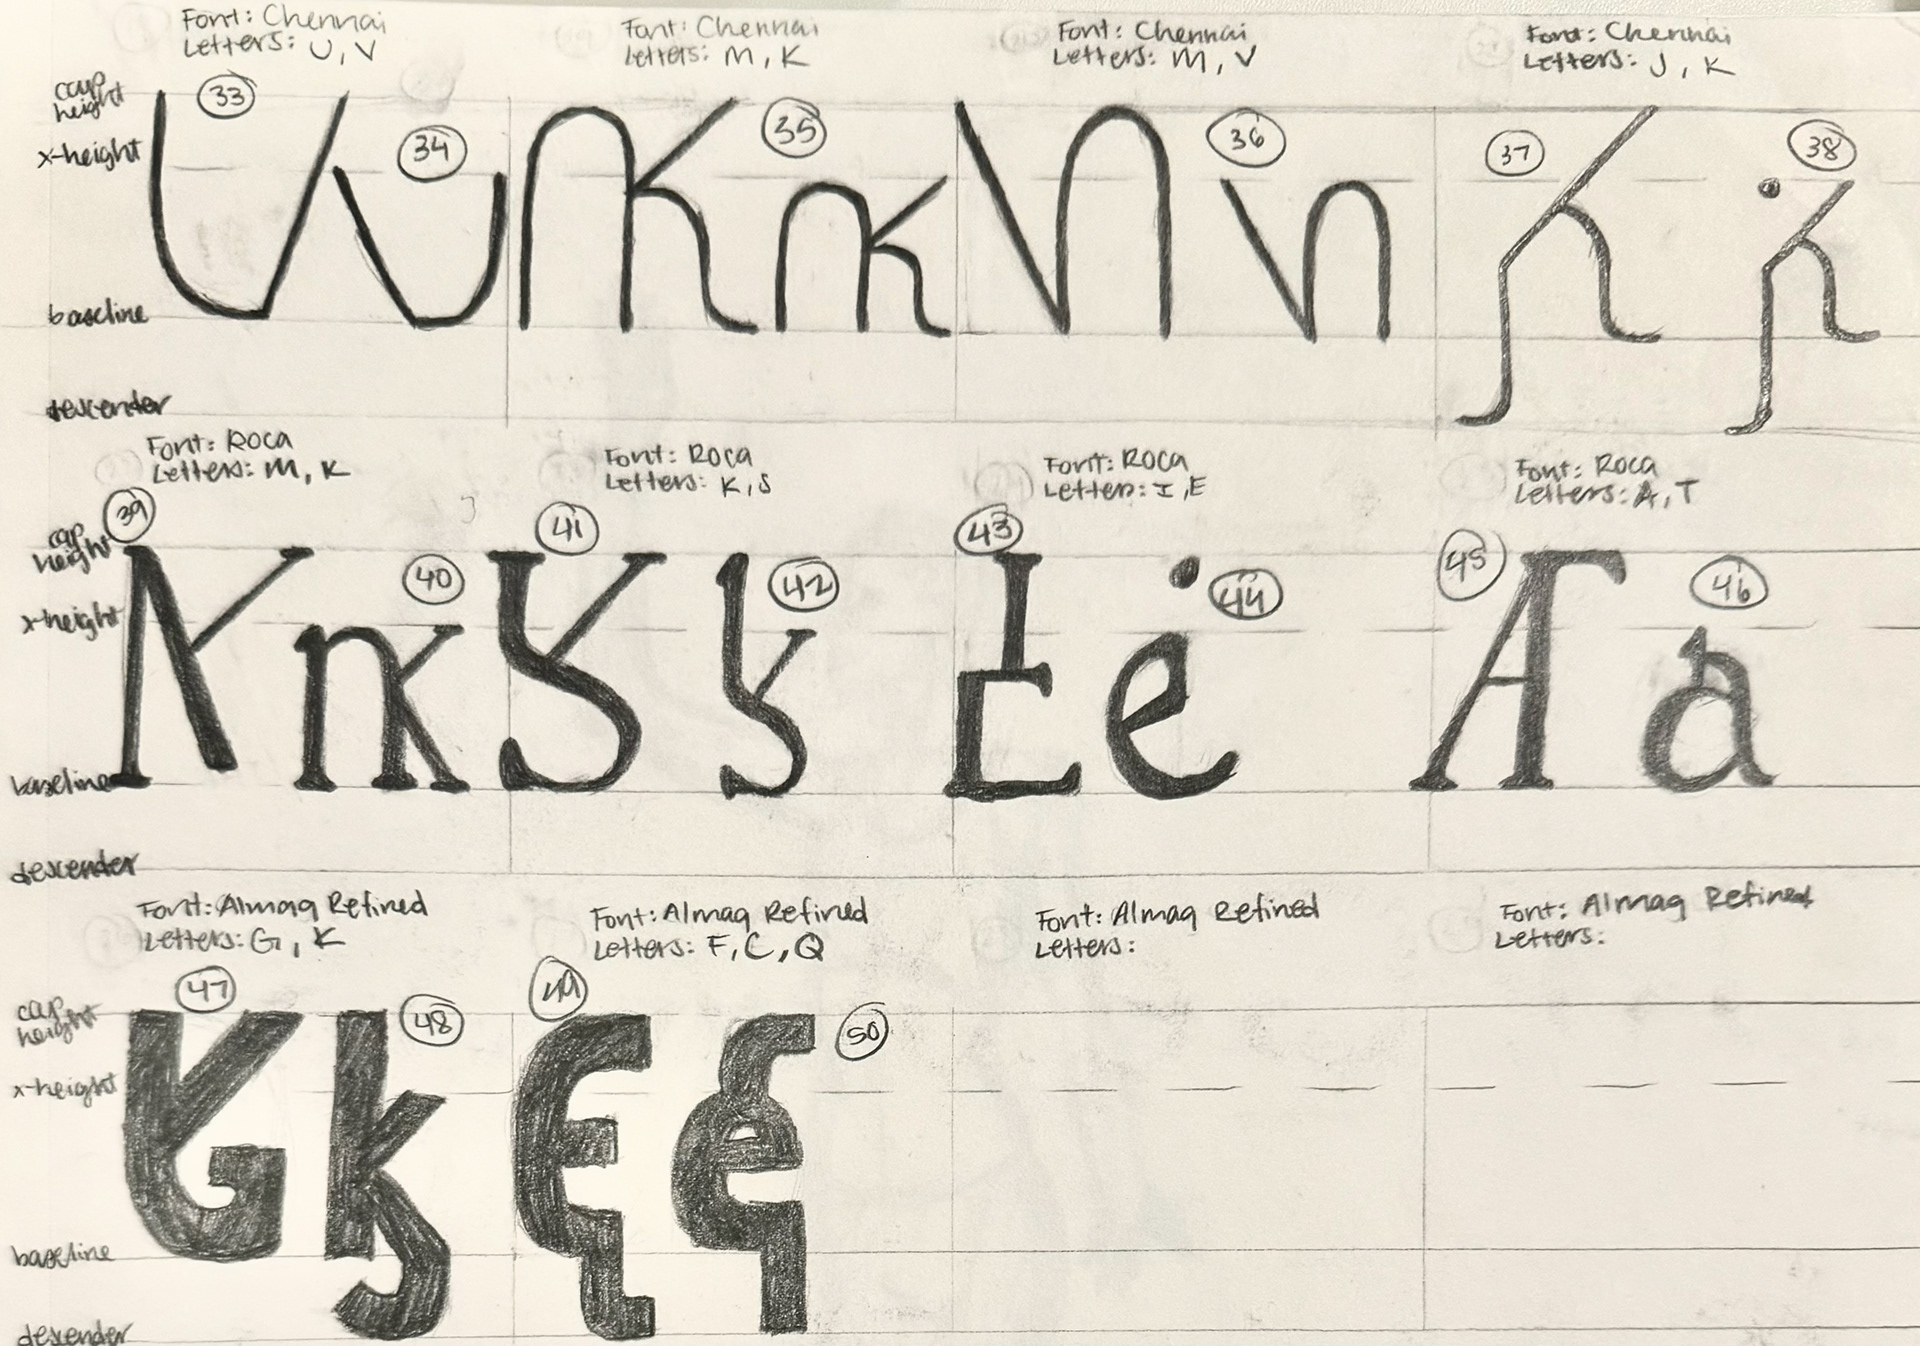 Font: Chennai
Letters: U, V
Font: Chennai
Letters: M, K
Font: Chennai
Letters: M, V
Font: Chennai
Letters: J, K
cap height
x-height
baseline
descender
33
34
35
36
37
38
Font: Roca
Letters: M, K
Font: Roca
Letters: K, S
Font: Roca
Letters: I, E
Font: Roca
Letters: A, T
cap height
x-height
baseline
descender
39
40
41
42
43
44
45
46
Font: Almaq Refined
Letters: G, K
Font: Almaq Refined
Letters: F, C, Q
Font: Almaq Refined
Letters:
Font: Almaq Refined
Letters:
cap height
x-height
baseline
descender
47
48
49
50